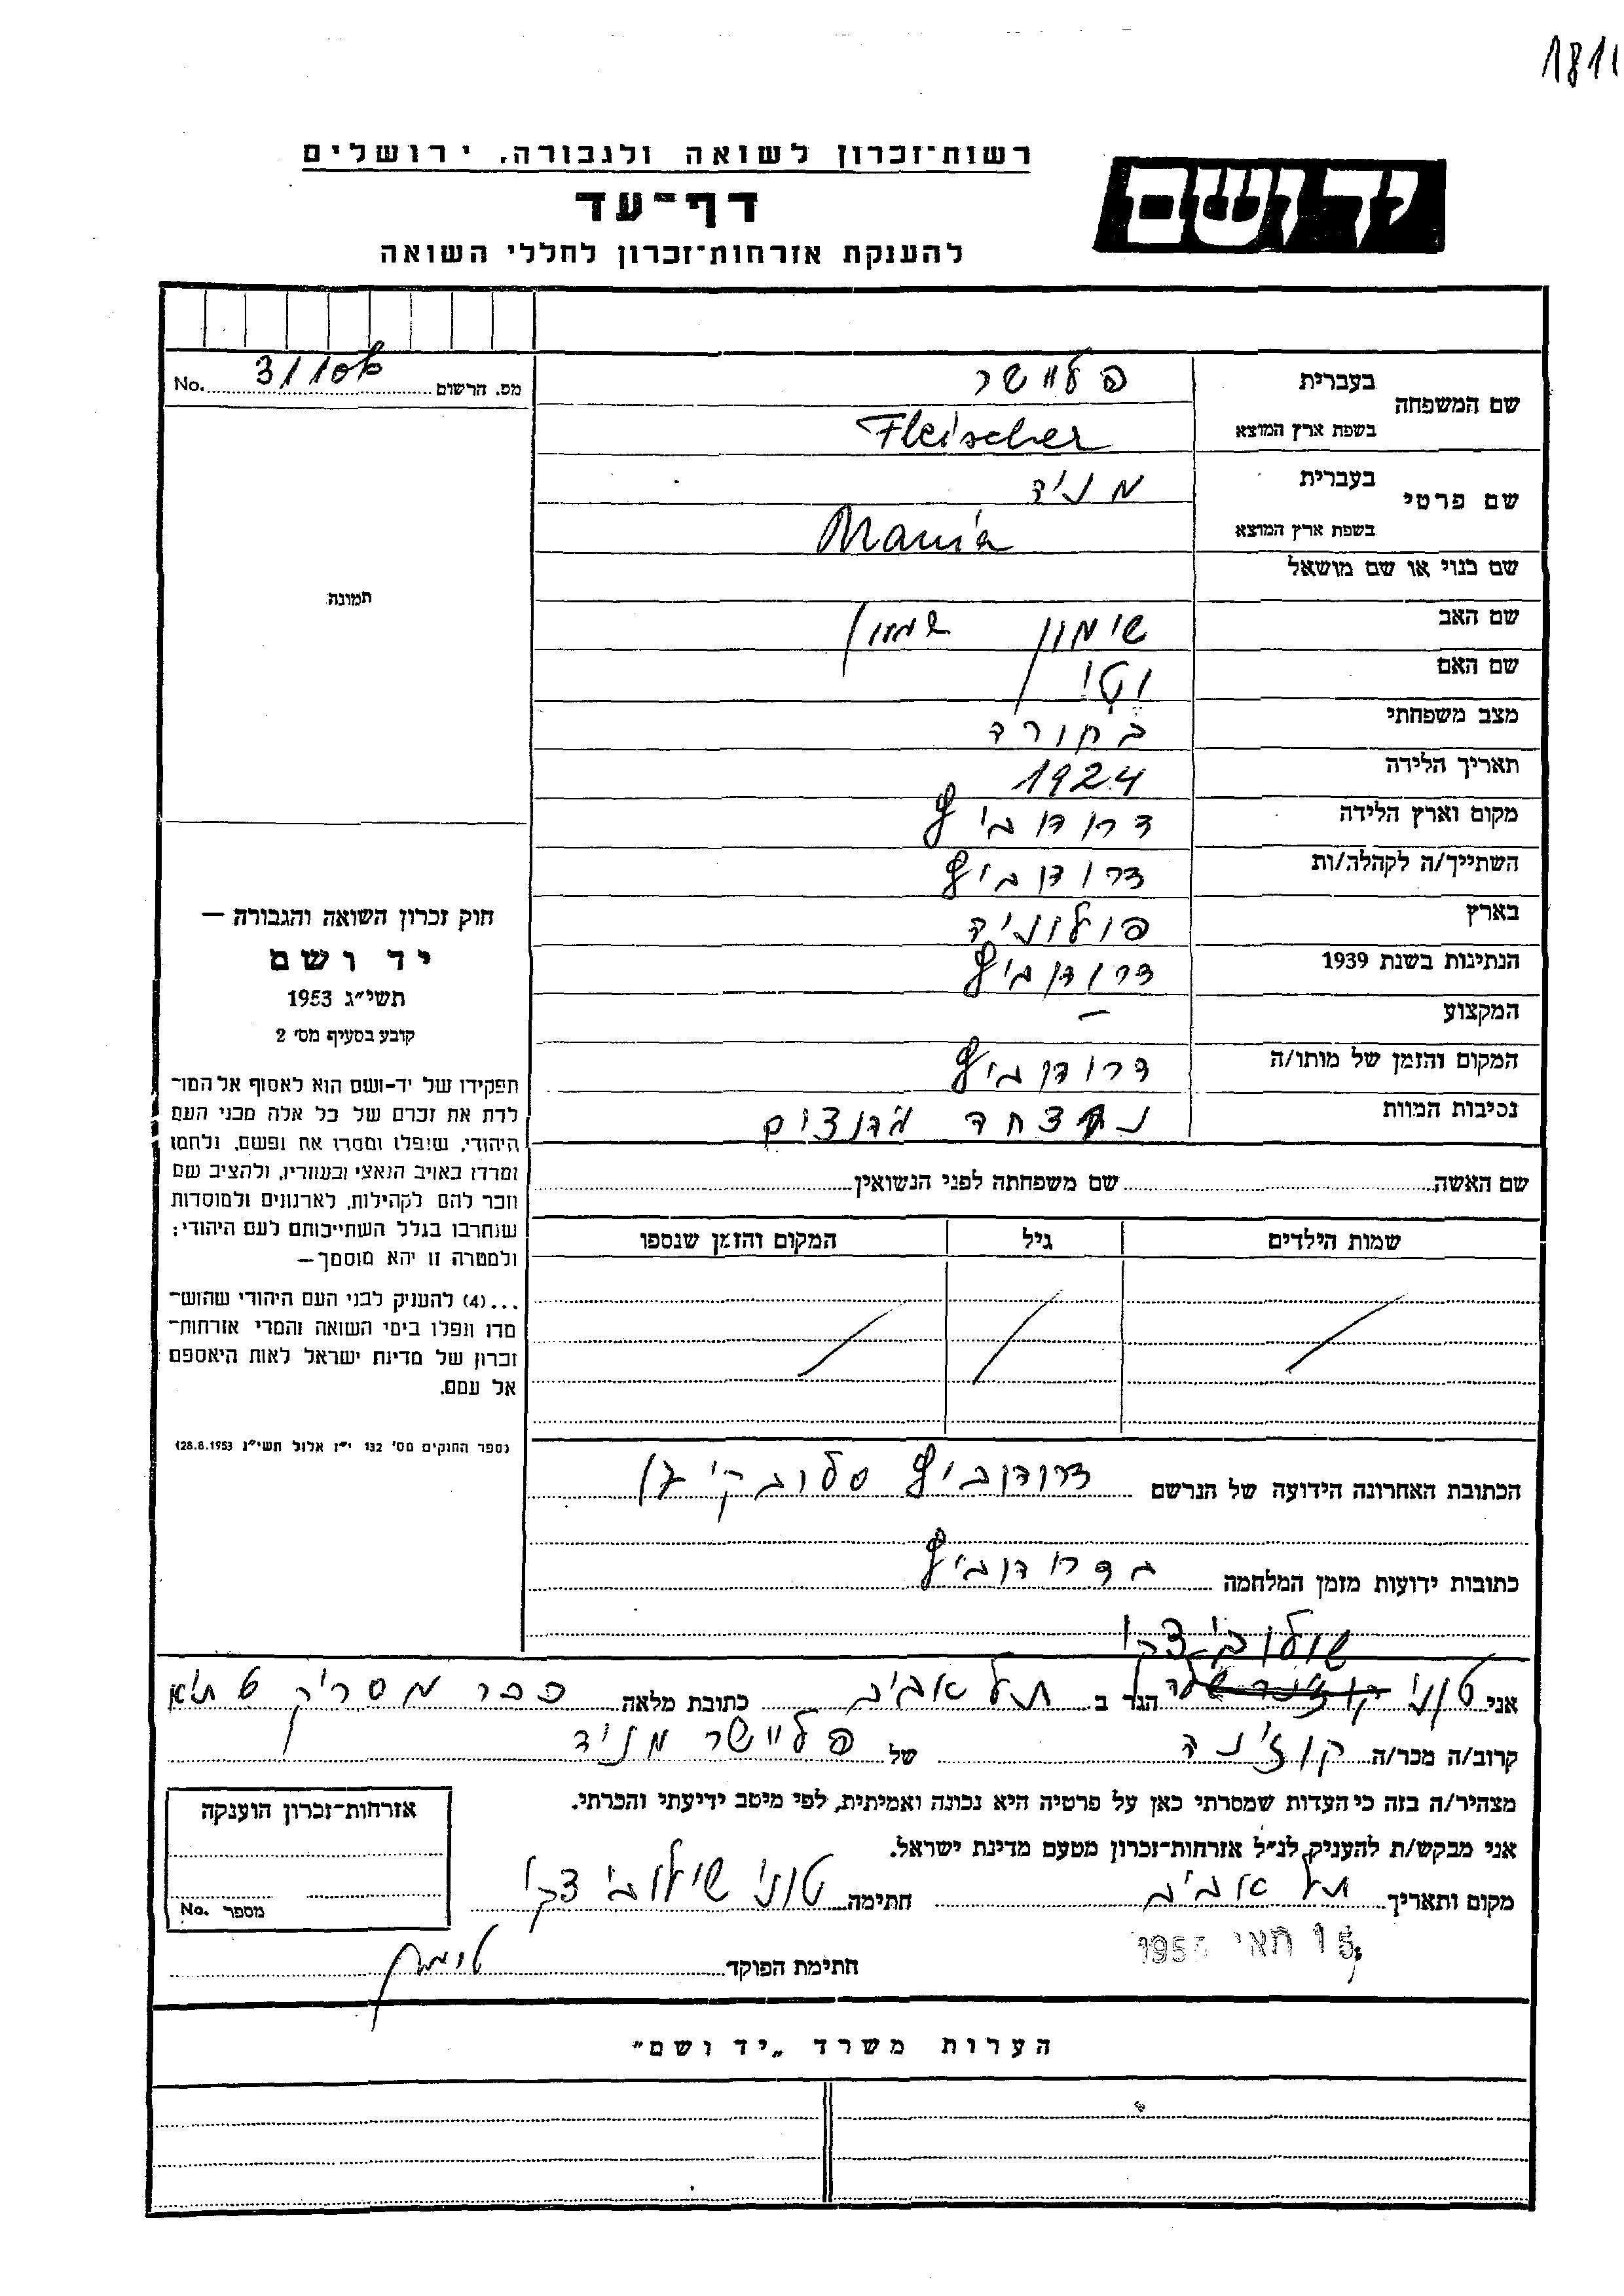 1811
רשות־זכרון לשואה ולגבורה, ירושלים
יד ושם
דף־עד
להענקת אזרחות־זכרון לחללי השואה
מס. הרשום No.
שם המשפחה בעברית פליישר
בשפת ארץ המוצא Fleischer
שם פרטי בעברית מניה
בשפת ארץ המוצא Mania
שם כנוי או שם מושאל
תמונה
שם האב שימון שמעון
שם האם יטי
מצב משפחתי בחורה
תאריך הלידה 1924
מקום וארץ הלידה דרוהוביץ
השתייך/ה לקהלה/ות דרוהוביץ
בארץ פולוניה
הנתינות בשנת 1939 דרוהוביץ
המקצוע –
המקום והזמן של מותו/ה דרוהוביץ
נסיבות המוות נרצחה
שם האשה שם משפחתה לפני הנשואין
שמות הילדים גיל המקום והזמן שנספו
חוק זכרון השואה והגבורה —
יד ושם
תשי״ג 1953
קובע בסעיף מס׳ 2
תפקידו של יד-ושם הוא לאסוף אל המו־
לדת את זכרם של כל אלה מבני העם
היהודי, שנפלו ומסרו את נפשם, נלחמו
ומרדו באויב הנאצי ובעוזריו, ולהציב שם
וזכר להם לקהילות, לארגונים ולמוסדות
שנחרבו בגלל השתייכותם לעם היהודי;
ולמטרה זו יהא מוסמך—
...(4) להעניק לבני העם היהודי שהוש־
מדו ונפלו בימי השואה והמרי אזרחות־
זכרון של מדינת ישראל לאות היאספם
אל עמם.
(ספר החוקים מס׳ 132 י״ז אלול תשי״ג 28.8.1953)
הכתובת האחרונה הידועה של הנרשם דרוהוביץ
כתובות ידועות מזמן המלחמה בדרוהוביץ
אני טוני הגר ב תל אביב כתובת מלאה כפר מסריק
קרוב/ה מכר/ה קוזינה של פליישר מניה
מצהיר/ה בזה כי העדות שמסרתי כאן על פרטיה היא נכונה ואמיתית, לפי מיטב ידיעתי והכרתי.
אני מבקש/ת להעניק לנ״ל אזרחות־זכרון מטעם מדינת ישראל.
מקום ותאריך תל אביב חתימה טוני
15 מאי
חתימת הפוקד
אזרחות־זכרון הוענקה
מספר No.
הערות משרד „יד ושם״